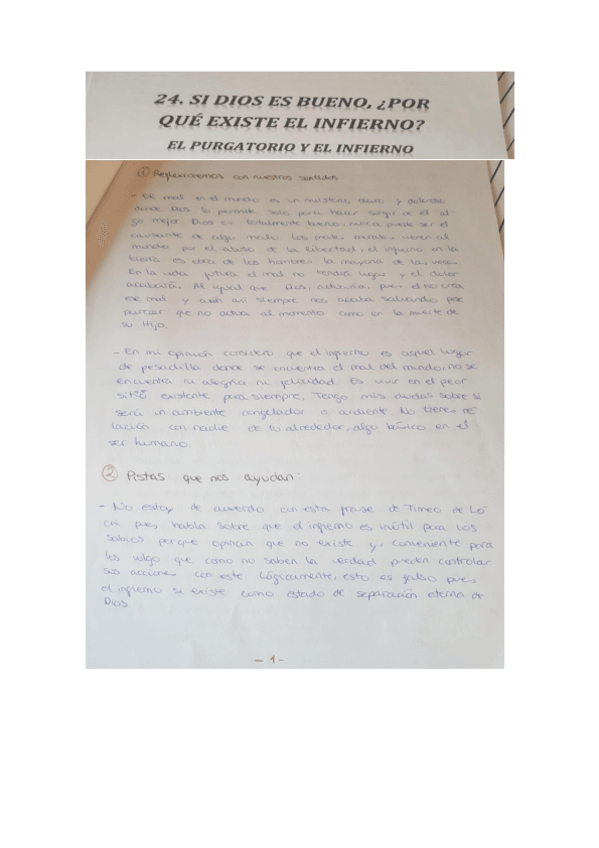 24. SI DIOS ES BUENO, ¿POR
QUÉ EXISTE EL INFIERNO?
EL PURGATORIO Y EL INFIERNO
① Reflexionemos con nuestros sentidos:
- El mal en el mundo es un misterio oscuro y doloroso
donde Dios lo permite solo para hacer surgir de él al-
go mejor. Dios es totalmente bueno, nunca puede ser el
causante de algo malo. Los males morales vienen al
mundo por el abuso de la libertad, el infierno en la
tierra es obra de los hombres la mayoría de las veces.
En la vida futura el mal no tendrá lugar y el dolor
acabará. Al igual que Dios, actuaría pues él no crea
ese mal y aún así siempre nos acaba salvando pese
parecer que no actúa al momento como en la muerte de
su Hijo.
- En mi opinión considero que el infierno es aquel lugar
de pesadilla donde se encuentra el mal del mundo, no se
encuentra ni alegría ni felicidad. Es vivir en el peor
sitio existente para siempre. Tengo mis dudas sobre si
será un ambiente congelador o ardiente. No tienes re-
lación con nadie de tu alrededor, algo básico en el
ser humano.
② Pistas que nos ayudan:
- No estoy de acuerdo con esta frase de Timeo de Ló-
cri pues habla sobre que el infierno es inútil para los
sabios porque opinan que no existe y, conveniente para
los vulgo que como no saben la verdad pueden controlar
sus acciones con este. Lógicamente, esto es falso pues
el infierno si existe como estado de separación eterna de
Dios
- 1 -